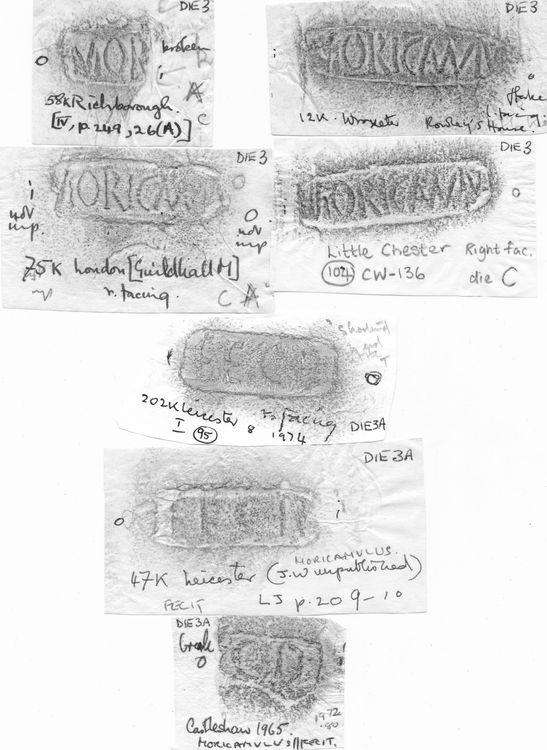 DIE 3
MOR
broken
o
i
A
C
58K Richborough.
[IV, p.249, 26(A)]
DIE 3
MORICAMV
12K. Wroxeter Rowley's House.
DIE 3
i
not
imp.
MORICAM
O
not
imp.
75K London [Guildhall M]
r. facing.
C A
DIE 3
MORICAMV
o
Little Chester Right fac.
104 CW-136 die C
FECI
202K Leicester r. facing
I 95 8 1974
DIE 3A
DIE 3A
o
i
47K Leicester (J.W unpublished)
MORICAMULUS.
FECIT LJ p.209-10
DIE 3A
Break
O
CI
Castleshaw 1965.
1972
.80
MORICAMULUS//FECIT.